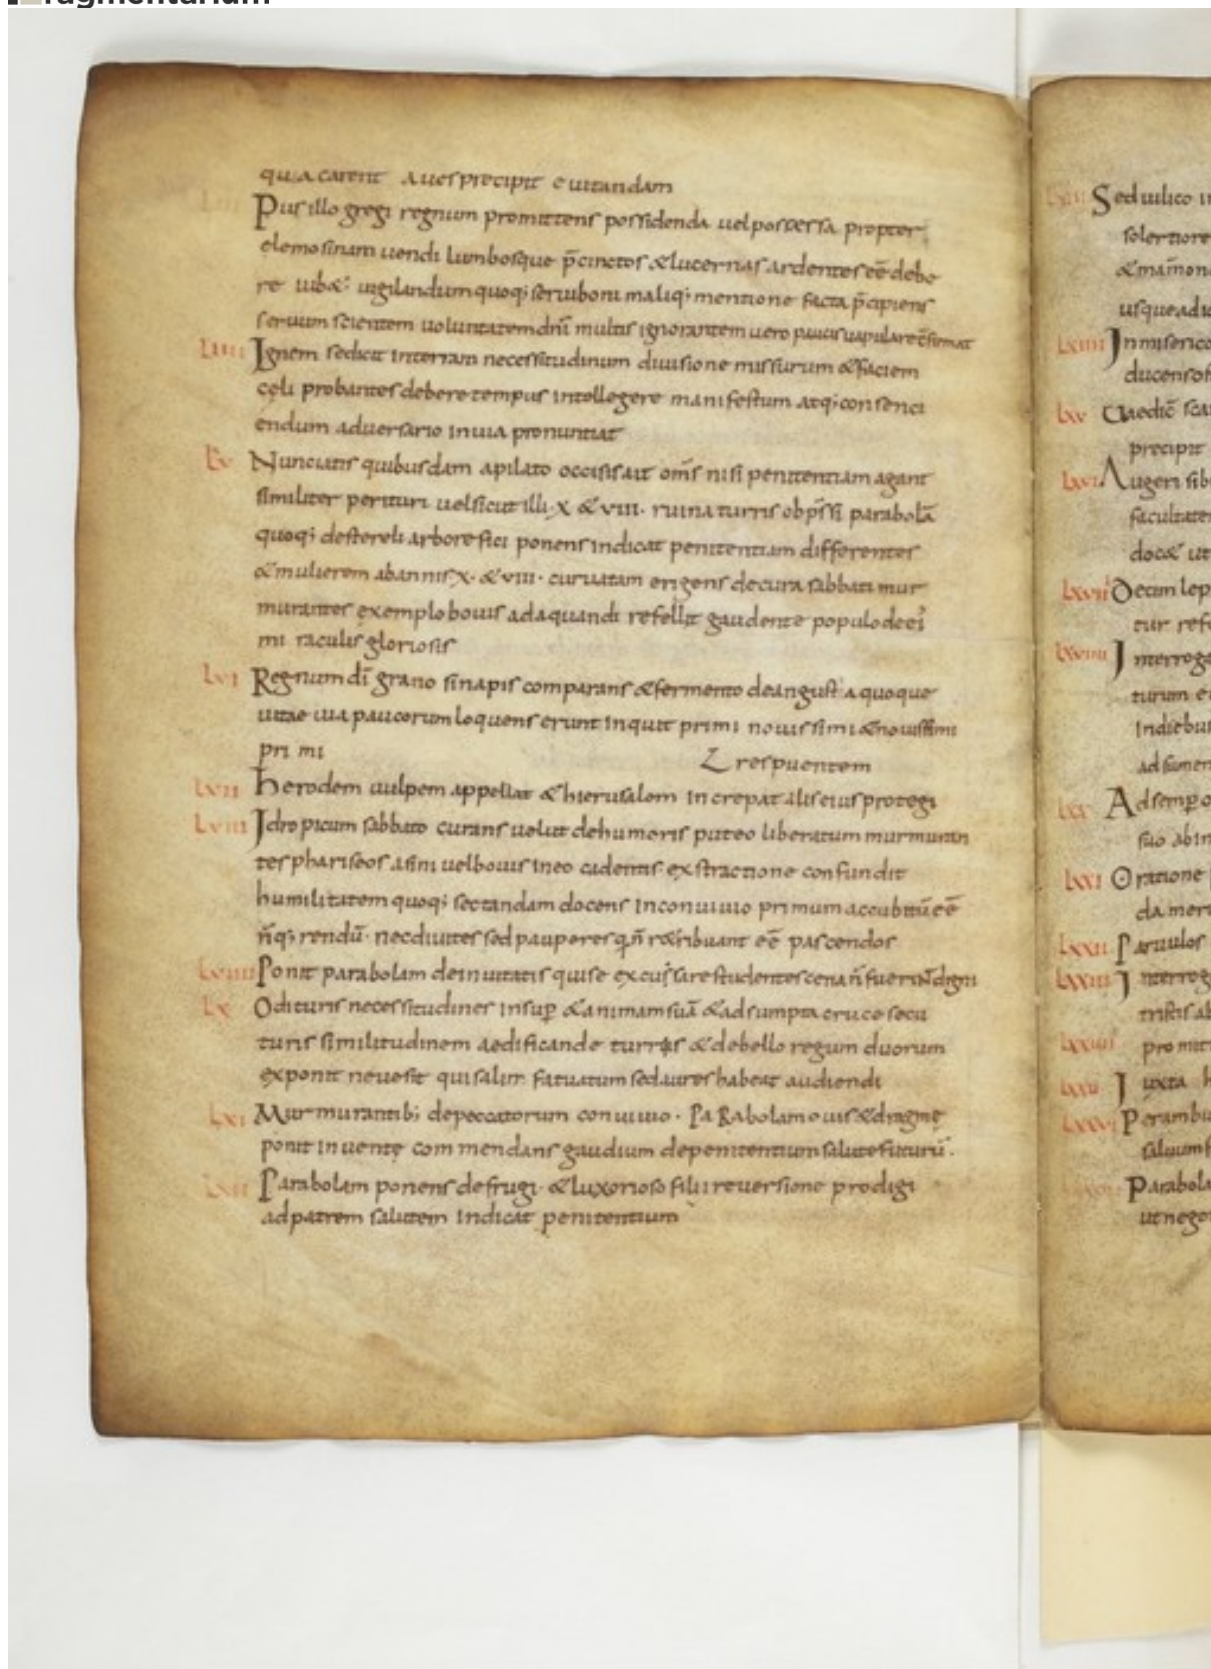 ragmentarium
qua carent aues precipit euitandam
Pusillo gregi regnum promittens possidenda uel possessa propter
elemosinam uendi lumbosque p̄cinctos & lucernas ardentes eē debe
re iub& uigilandum quoq; serui boni maliq; mentione facta p̄cipiens
seruum scientem uoluntatem dn̄i multis ignorantem uero paucis uapulare
LIIII Ignem se dicit in terram necessitudinum diuisione missurum & faciem
cęli probantes debere tempus intellegere manifestum atq; consenci
endum aduersario in uia pronuntiat
LV Nunciatis quibusdam a pilato occisis ait om̄s nisi penitentiam agant
similiter perituri uel sicut illi x & viii ruina turris obp̄ssi parabolā
quoq; de stereli arbore fici ponens indicat penitentiam differentes
& mulierem ab annis x & viii curuatam erigens de cura sabbati mur
murantes exemplo bouis adaquandi refellit gaudente populo de ei
miraculis gloriosis
LVI Regnum dī grano sinapis comparans & fermento de angusta quoque
uitae uia paucorum loquens erunt inquit primi nouissimi & nouissimi
primi
respuentem
LVII herodem uulpem appellat & hierusalem increpat alis eius protegi
LVIII Idropicum sabbato curans uelut de humoris puteo liberatum murmuran
tes phariseos asini uel bouis in eo cadentis exstractione confundit
humilitatem quoq; sectandam docens in conuiuio primum accubitū eē
n̄ q; rendū nec diuites sed pauperes q n̄ r&ribuant eē pascendos
LVIIII Ponit parabolam de inuitatis qui se excussare studentes cena n̄ fuerint digni
LX Odituris necessitudines insup & animam suā & adsumpta cruce secu
turis similitudinem aedificande turris & de bello regum duorum
exponit ne uosit qui salin fatuatum sed aures habeat audiendi
LXI Murmurantib; de peccatorum conuiuio PaRabolam ouis & dragme
ponit inuentę commendans gaudium de penitentium salute futurū
LXII Parabolam ponens de frugi & luxorioso filii reuersione prodigi
ad patrem salutem indicat penitentium
Sed uilico
solertiore
& mamon
usque adi
LXIIII In miserico
ducens
LXV Uae dic̄ sca
precipit
LXVI Augeri sib
facultate
doc& ut
LXVII Decim lep
tur ref
LXVIIII Interroga
turum e
In diebus
adsumen
LXX Ad semp o
suo ab in
LXXI Oratione
da mere
LXXII Paruulos
LXXIII Interrog
tristis ab
LXXIIII promit
LXXV Iuxta h
LXXVI Perambu
saluum f
Parabola
ut nego